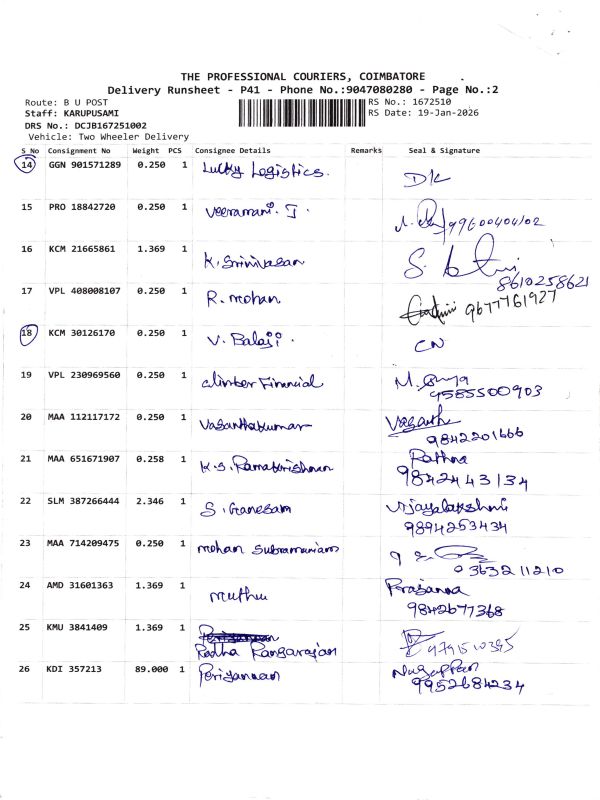 THE PROFESSIONAL COURIERS, COIMBATORE
Delivery Runsheet - P41 - Phone No.:9047080280 - Page No.:2
Route: B U POST RS No.: 1672510
Staff: KARUPUSAMI RS Date: 19-Jan-2026
DRS No.: DCJB167251002
Vehicle: Two Wheeler Delivery
S_No Consignment No Weight PCS Consignee Details Remarks Seal & Signature
14 GGN 901571289 0.250 1 Lucky Logistics. D/L
15 PRO 18842720 0.250 1 Veeramani. J.
16 KCM 21665861 1.369 1 K. Srinivasan 8610258621
17 VPL 408008107 0.250 1 R. mohan 9677761927
18 KCM 30126170 0.250 1 V. Balaji. CN
19 VPL 230969560 0.250 1 Financial M.
9585500903
20 MAA 112117172 0.250 1 Vasanthakumar Vasanth
9842201666
21 MAA 651671907 0.258 1 K.S. Ramakrishnan Rathna
9842443134
22 SLM 387266444 2.346 1 S. Ganesam Vijayalakshmi
9894253434
23 MAA 714209475 0.250 1 mohan Subramaniam
0363211210
24 AMD 31601363 1.369 1 muthu Prasanna
9842677368
25 KMU 3841409 1.369 1
Radha Rangarajan 9791510395
26 KDI 357213 89.000 1 Periyannan Nagappan
9952684234